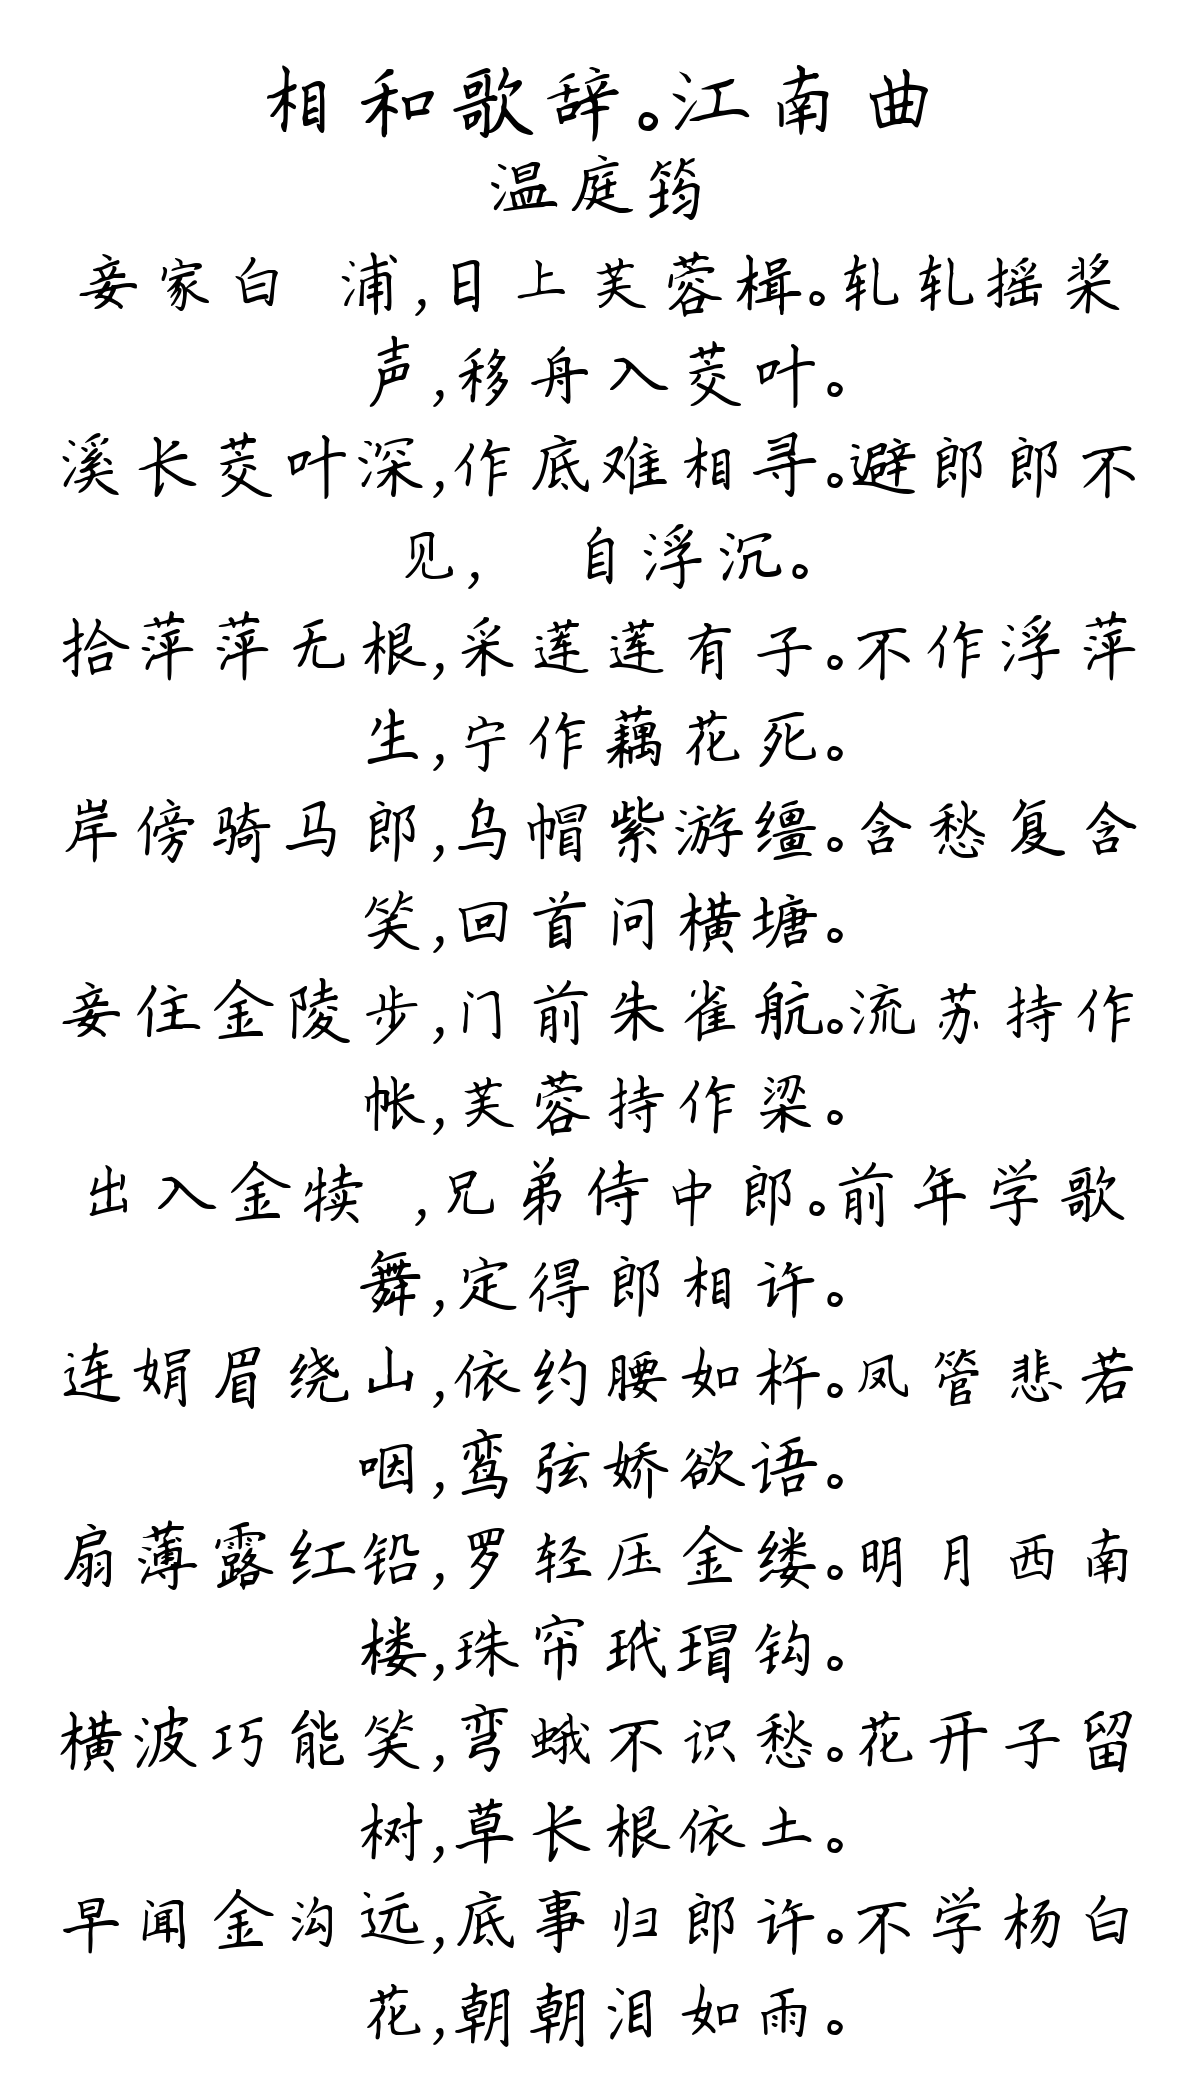 相和歌辞。江南曲
温庭筠
妾家白 浦,日上芙蓉楫。轧轧摇桨
声,移舟入茭叶。
溪长茭叶深,作底难相寻。避郎郎不
见, 自浮沉。
拾萍萍无根,采莲莲有子。不作浮萍
生,宁作藕花死。
岸傍骑马郎,乌帽紫游缰。含愁复含
笑,回首问横塘。
妾住金陵步,门前朱雀航。流苏持作
帐,芙蓉持作梁。
出入金犊 ,兄弟侍中郎。前年学歌
舞,定得郎相许。
连娟眉绕山,依约腰如杵。凤管悲若
咽,鸾弦娇欲语。
扇薄露红铅,罗轻压金缕。明月西南
楼,珠帘玳瑁钩。
横波巧能笑,弯蛾不识愁。花开子留
树,草长根依土。
早闻金沟远,底事归郎许。不学杨白
花,朝朝泪如雨。